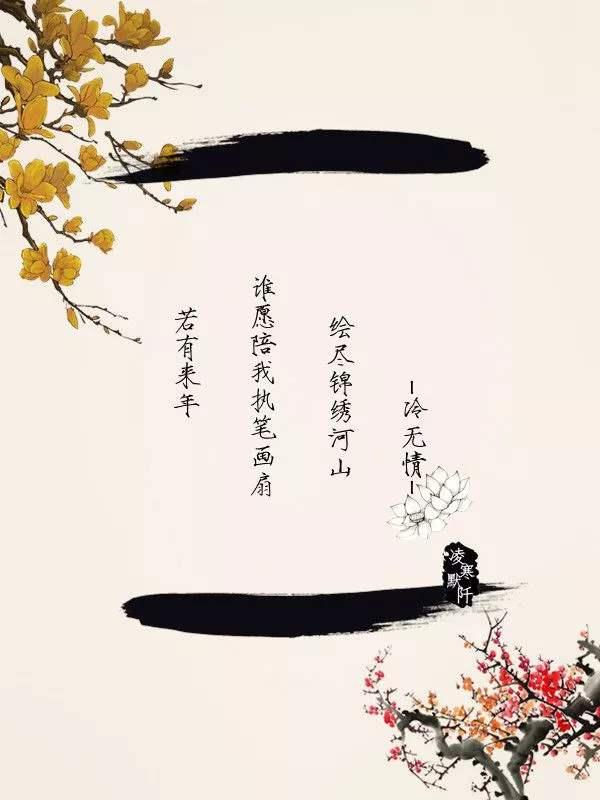 若有来年
谁愿陪我执笔画扇
绘尽锦绣河山
-冷无情-
凌寒
默阡